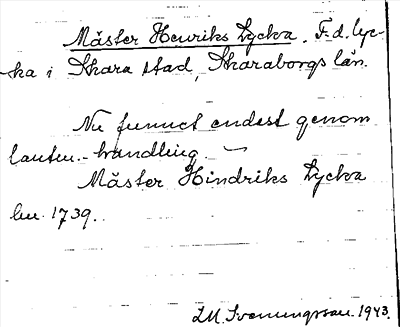 Mäster Henriks Lycka. F. d. lyc-
ka i Skara stad, Skaraborgs län.
Nu funnet endast genom
lantm.-handling. –
Mäster Hindriks Lycka
lm. 1739.
1943.